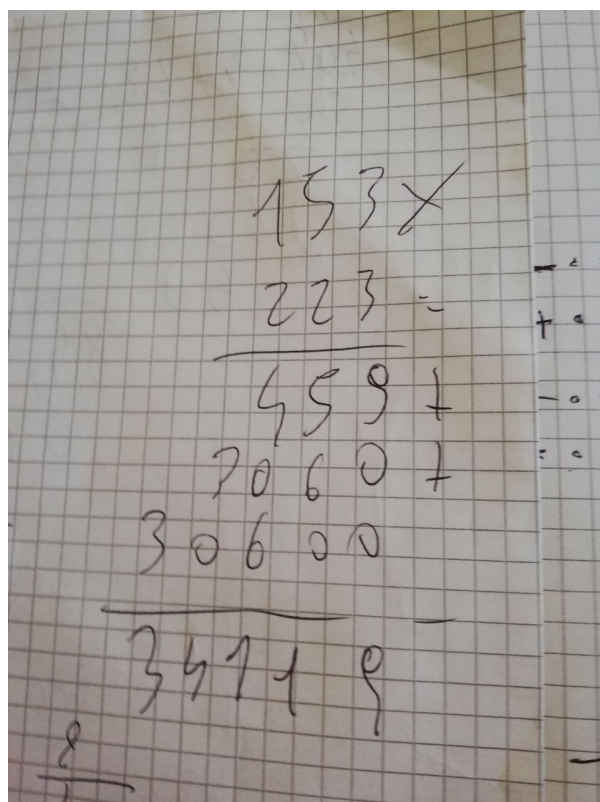 153×
223=
459+
3060+
30600
34119
8